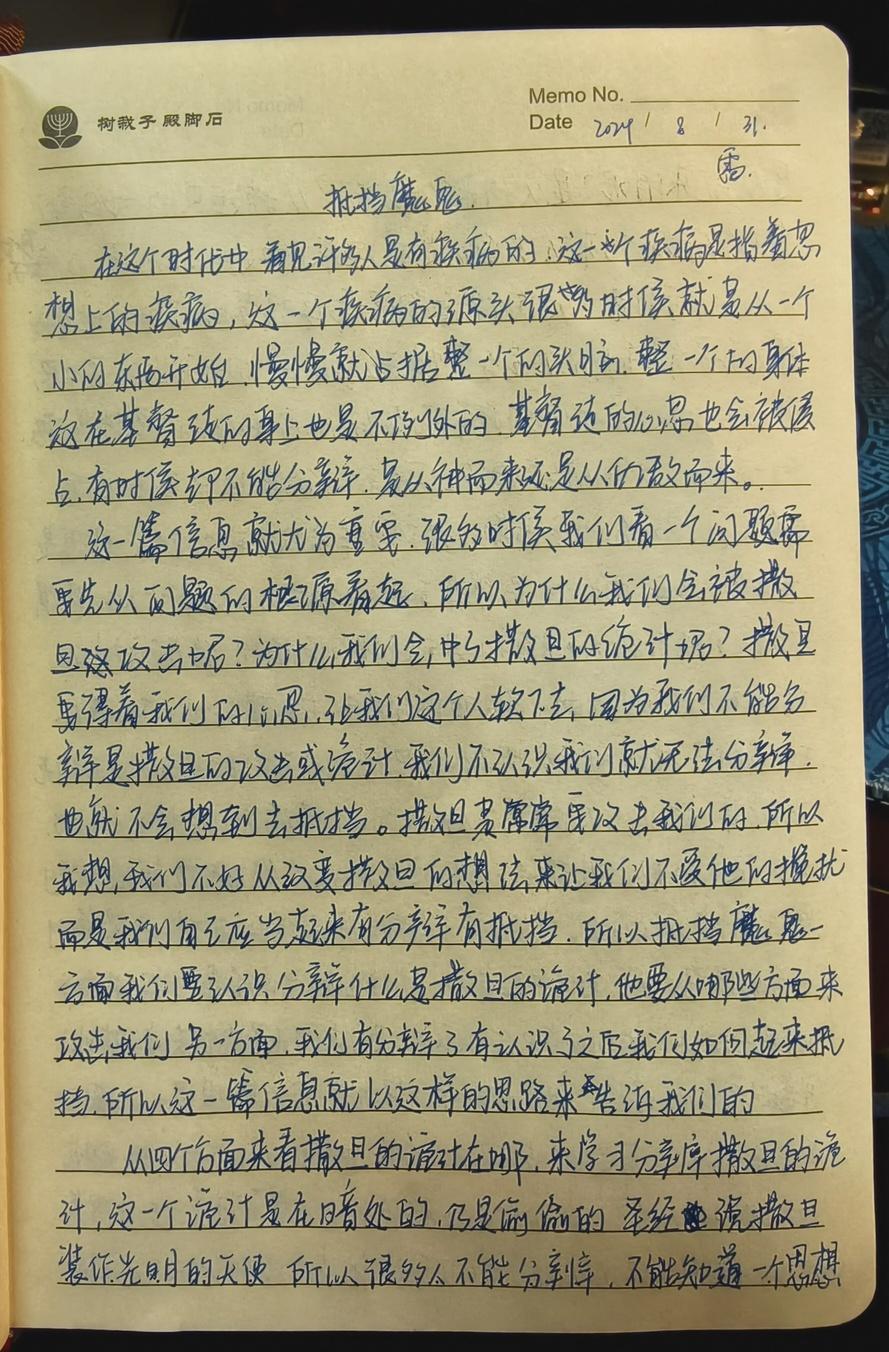 树栽子殿脚石
Memo No.
Date 2024 / 8 / 31.
雷.
抵挡魔鬼.
在这个时代中 看见许多人是有疾病的.这一个疾病是指着思
想上的疾病,这一个疾病的源头很多时候就是从一个
小的东西开始.慢慢就占据整一个的头脑.整一个的身体
这在基督徒的身上也是不例外的.基督徒的心思也会被侵
占.有时侯却不能分辩.是从神而来还是从仇敌而来。
这一篇信息就尤为重要.很多时侯我们看一个问题需
要先从问题的根源看起.所以为什么我们会被撒
旦攻击呢?为什么我们会中了撒旦的诡计呢?撒旦
要得着我们的心思.让我们这个人软下去,因为我们不能分
辩是撒旦的攻击或诡计.我们不认识我们就无法分辩.
也就不会想到去抵挡。撒旦是常常要攻击我们的.所以
我想,我们不好从改变撒旦的想法来让我们不受他的搅扰
而是我们自己应当起来有分辩有抵挡.所以抵挡魔鬼一
方面我们要认识分辩什么是撒旦的诡计.他要从哪些方面来
攻击我们 另一方面.我们有分辩了有认识了之后我们如何起来抵
挡.所以这一篇信息就以这样的思路来告诉我们的
从四个方面来看撒旦的诡计在哪.来学习分辩撒旦的诡
计,这一个诡计是在暗处的.乃是偷偷的 圣经说撒旦
装作光明的天使 所以很多人不能分辩.不能知道一个思想